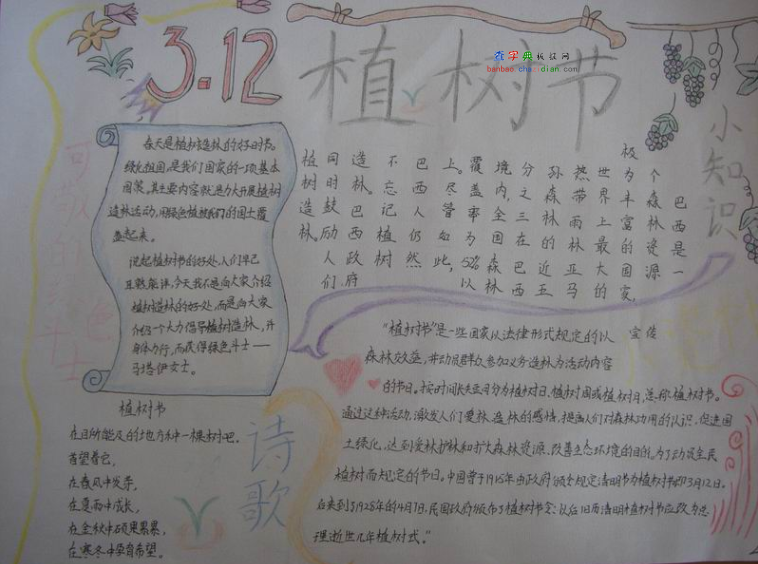 3.12
植树节
查字典板报网
banbao.chazidian.com
小知识
春天是植树造林的好时节。
绿化祖国,是我们国家的一项基本
国策,其主要内容就是大力开展植树
造林活动,用绿色植被我们的国土覆
盖起来。
说起植树节的好处,人们早已
耳熟能详,今天我不是向大家介绍
植树造林的好处,而是向大家
介绍一个大力倡导植树造林,并
身体力行,而获得绿色斗士——
马塔伊女士。
巴西是一
个森林资源
极为丰富的国家,
世界上最大的
热带雨林亚马
孙森林的近
分之三在巴西
境内,全国森林
覆盖率为52%以
上。尽管如此,
巴西人仍然
不忘记植树
造林。巴西政府
同时鼓励人们
植树造林。
"植树节"是一些国家以法律形式规定的以 宣传
森林效益,并动员群众参加义务造林为活动内容
的节日。按时间长短可分为植树日、植树周或植树月,总称植树节。
通过这种活动,激发人们爱林、造林的感情,提高人们对森林功用的认识,促进国
土绿化,达到爱林护林和扩大森林资源、改善生态环境的目的。为了动员全民
植树而规定的节日。中国曾于1915年由政府规定清明节为植树节即3月12日。
后来到了1928年的4月7日,民国政府
诗歌
植树节
在目所能及的地方种一棵树吧,
看望着它,
在春风中发芽,
在夏雨中成长,
在金秋中硕果累累,
在寒冬中孕育希望。